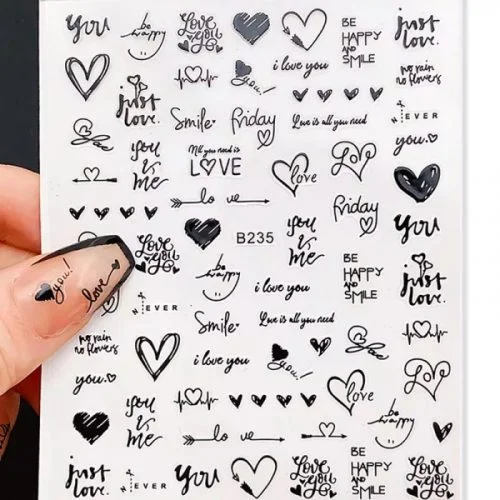 you
be
happy
Love
you
i love you
BE
HAPPY
AND
SMILE
just
love.
you!
no rain
no flowers
just
love.
Smile
Friday
Love is all you need
N
EVER
you
you
is
me
All you need is
LOVE
love
Love
lo ve
Friday
you
Love
you
B235
you
is
me
be
happy
i love you
BE
HAPPY
AND
SMILE
just
love.
you!
love
N
EVER
Smile
Love is all you need
no rain
no flowers
i love you
you!
Love
you
you
is
me
love
be
happy
lo ve
just
love.
N
EVER
you
Love
you
BE
HAPPY
AND
SMILE
you